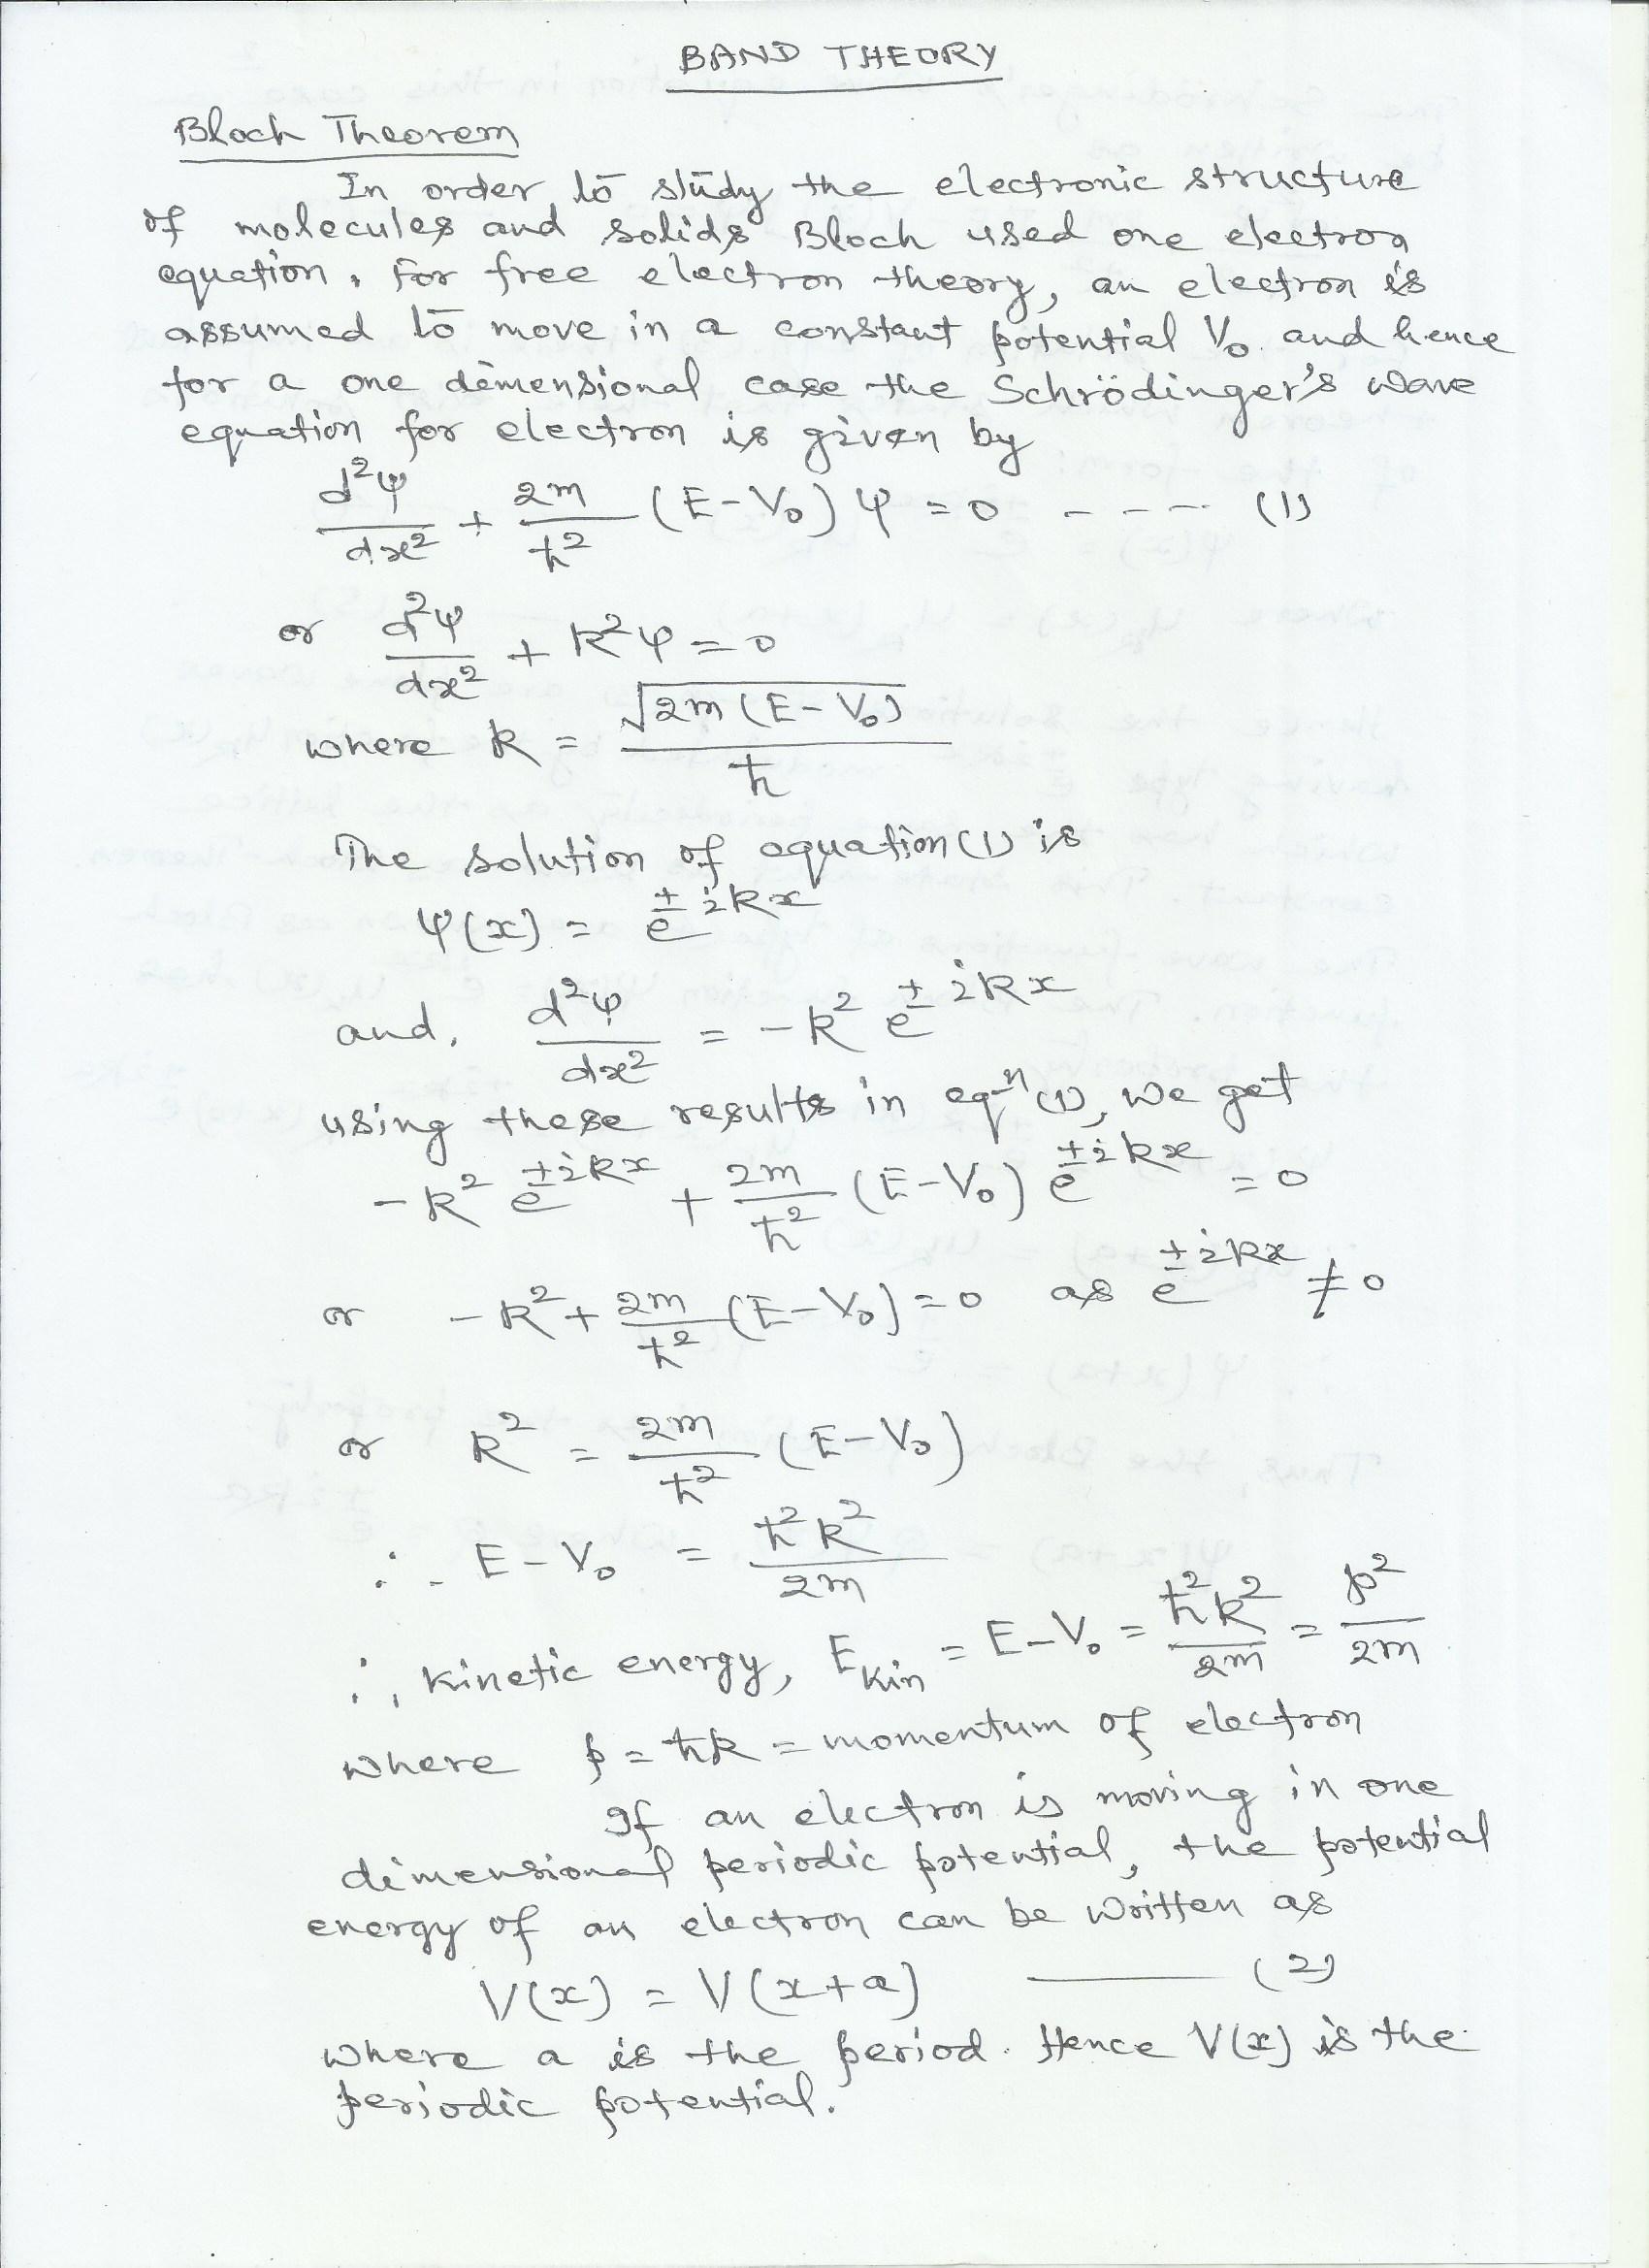 BAND THEORY
Bloch Theorem
In order to study the electronic structure
of molecules and solids Bloch used one electron
equation. For free electron theory, an electron is
assumed to move in a constant potential V₀ and hence
for a one dimensional case the Schrödinger's wave
equation for electron is given by
d²ψ/dx² + 2m/ħ² (E-V₀) ψ = 0 ---- (1)
or d²ψ/dx² + k²ψ = 0
where k = √2m(E-V₀) / ħ
The solution of equation (1) is
ψ(x) = e^±ikx
and, d²ψ/dx² = -k² e^±ikx
using these results in eqⁿ (1), we get
-k² e^±ikx + 2m/ħ² (E-V₀) e^±ikx = 0
or -k² + 2m/ħ² (E-V₀) = 0 as e^±ikx ≠ 0
or k² = 2m/ħ² (E-V₀)
∴ E-V₀ = ħ²k²/2m
∴ kinetic energy, E_kin = E-V₀ = ħ²k²/2m = p²/2m
where p = ħk = momentum of electron
If an electron is moving in one
dimensional periodic potential, the potential
energy of an electron can be written as
V(x) = V(x+a) —— (2)
where a is the period. Hence V(x) is the
periodic potential.